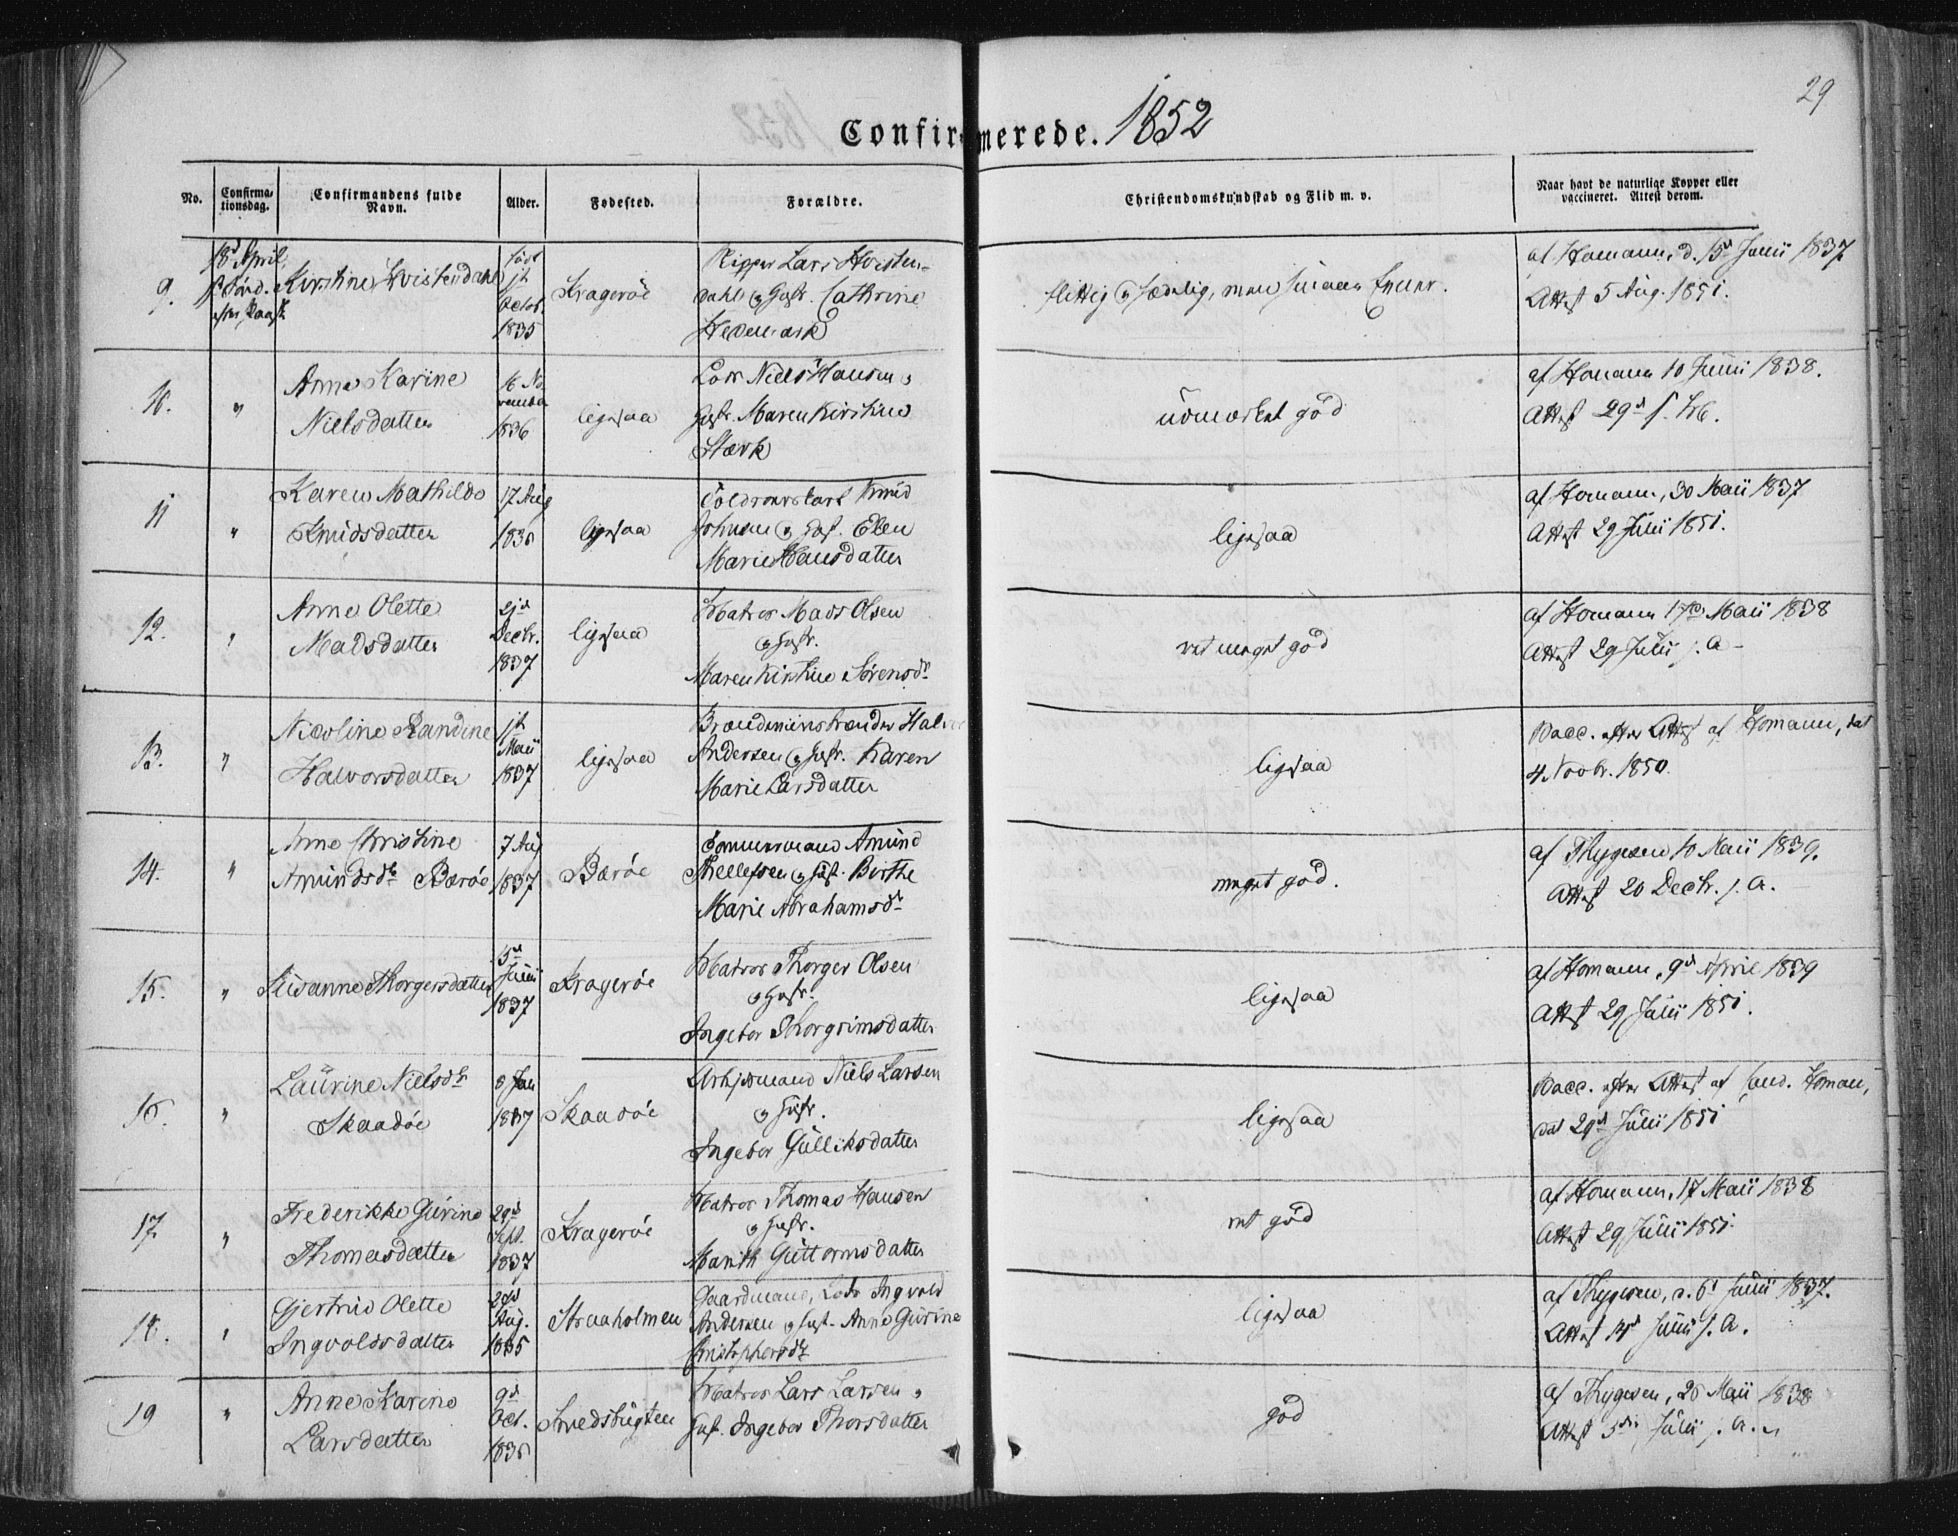 29
Confirmerede. 1852
No.
Confirma-
tionsdag.
Confirmandens fulde
Navn.
Alder.
Fødested.
Forældre.
Christendomskundskab og Flid m. v.
Naar havt de naturlige Kopper eller
vaccineret. Attest derom.
9.
18d April
1st Sønd.
efter Paask
Kirstine Hvistendahl
født
1st
Octob.
1835
Kragerøe
Skipper Lars Hvisten-
dahl og Hustr. Cathrine
Hedemark
flittig og sædelig, men smaa Evner.
af Homann, d. 15d Junii 1837
Attest 5 Aug. 1851.
10.
"
Anne Karine
Nielsdatter
16 No
vember
1836
ligesaa
Lods Niels Hansen og
Hustr. Maren Kirstine
Stærk
udmærket god
af Homann 10 Junii 1838.
Attest 29d
11
"
Karen Mathilde
Knudsdatter
17 Aug
1836
ligesaa
Toldroerskarl Knud
Johnsen og Hust. Elen
Marie Hansdatter
ligesaa
af Homann, 30 Maii 1837
Attest 29 Julii 1851.
12.
"
Anne Olette
Madsdatter
21d
Decbr.
1837
ligesaa
Matros Mads Olsen
og Hustr.
Maren Kirstine Sørensdr
ret meget god
af Homann 17de Maii 1838
Attest 29 Julii s. A.
13.
"
Nicoline Randine
Halvorsdatter
1st
Maii
1837
ligesaa
Brændeviinsbrænder Halvor
Andersen og Hustr. Karen
Marie Larsdatter
ligesaa
Vacc. efter Attest af Homann, dat
4 Novbr. 1850.
14.
"
Anne Christine
Amundsdr Bærøe
7 Aug
1837
Bærøe
Tømmermand Amund
Thellefsen og Hust. Birthe
Marie Abrahamsdr
meget god.
af Thygesen 10 Maii 1839.
Attest 20 Decbr. s. A.
15.
"
Susanne Thorgersdatter
5d
Junii
1837
Kragerøe
Matros Thorger Olsen
og Hustr.
Ingebor Thorgrimsdatter
ligesaa
af Homann, 9d April 1839
Attest 29 Julii 1851.
16.
"
Laurine Nielsdr
Skaadøe
8 Jan
1837
Skaadøe
Arbejdsmand Niels Larsen
og Hustr.
Ingebor Gulliksdatter
ligesaa
Vacc. efter Attest af Cand. Homan,
dat 29d Julii 1851
17.
"
Frederikke Gurine
Thomasdatter
29d
Sept.
1837
Kragerøe
Matros Thomas Hansen
og Hustr.
Marith Guttormsdatter
ret god
af Homann, 17 Maii 1838
Attest 29 Julii 1851.
18.
"
Gjertrud Olette
Ingvoldsdatter
29d
Aug.
1835
Straaholmen
Gaardmand, Lods Ingvold
Andersen og Hust. Anne Gurine
Christophersdr
ligesaa
af Thygesen, d. 6t Junii 1837.
Attest 14d Junii s. A.
19
"
Anne Karine
Larsdatter
9d
Oct.
1836
Smedsbugten
Matros Lars Larsen og
Hust. Ingebor Thorsdatter
god
af Thygesen, 26 Maii 1838
Attest 5te Julii s. A.